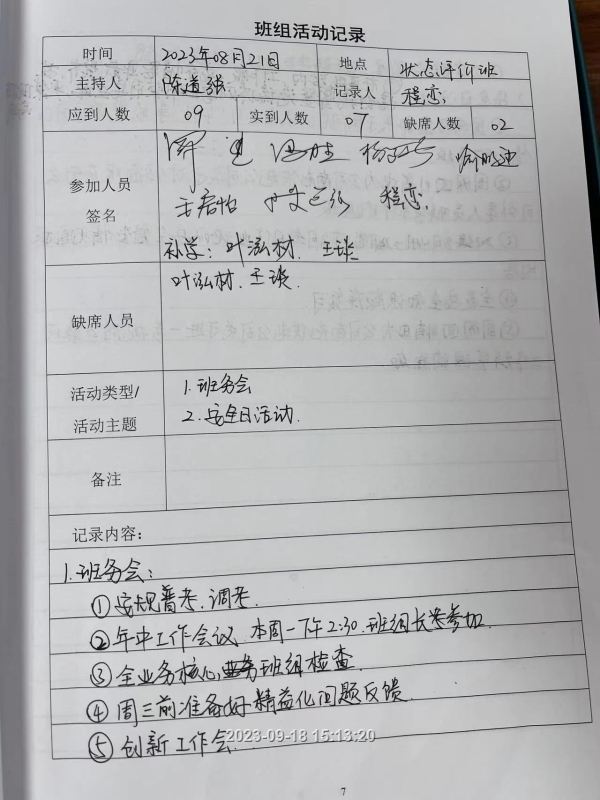 班组活动记录
时间 2023年08月21日 地点 状态评价班
主持人 陈道强 记录人 程恋
应到人数 09 实到人数 07 缺席人数 02
参加人员
签名
程恋
补学: 叶泓材、王谈
缺席人员 叶泓材、王谈
活动类型/
活动主题
1.班务会
2.安全日活动
备注
记录内容:
1.班务会:
①安规普考、调考
②年中工作会议 本周一下午2:30.班组长要参加
③全业务核心班组检查
④周三前准备好精益化问题反馈
⑤创新工作会
2023-09-18 15:13:20
7